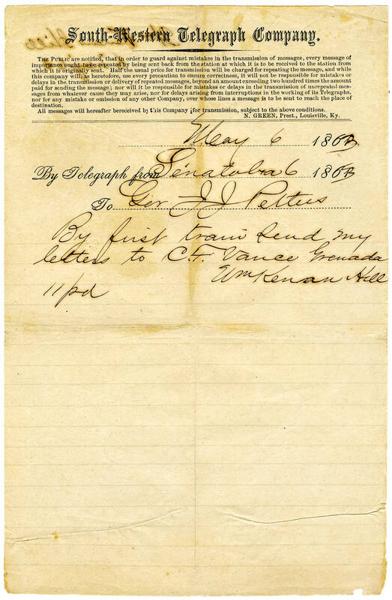 South-Western Telegraph Company.
THE PUBLIC are notified, that in order to guard against mistakes in the transmission of messages, every message of
importance ought to be repeated by being sent back from the station at which it is to be received to the station from
which it is originally sent. Half the usual price for transmission will be charged for repeating the message, and while
this company will as heretofore, use every precaution to ensure correctness, it will not be responsible for mistakes or
delays in the transmission or delivery of repeated messages, beyond an amount exceeding two hundred times the amount
paid for sending the message; nor will it be responsible for mistakes or delays in the transmission of unrepeated mes-
sages from whatever cause they may arise, nor for delays arising from interruptions in the working of its Telegraphs,
nor for any mistake or omission of any other Company, over whose lines a message is to be sent to reach the place of
destination.
All messages will hereafter be received by this Company for transmission, subject to the above conditions.
N. GREEN, Prest., Louisville, Ky.
May 6 186
By Telegraph from Senatobia 6 186
To Gov J J Pettus
By first train send my
letters to C.F. Vance Grenada
Wm Kenan Hill
11 pd